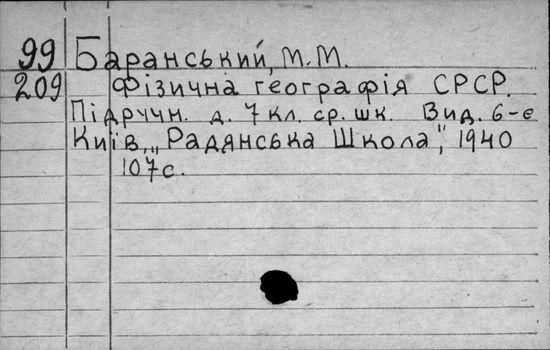 99 Баранський, М.М.
209 Фізична географія СРСР.
Підручн. д. 7 кл. ср. шк. Вид. 6-є
Київ, „Радянська Школа", 1940
107 с.